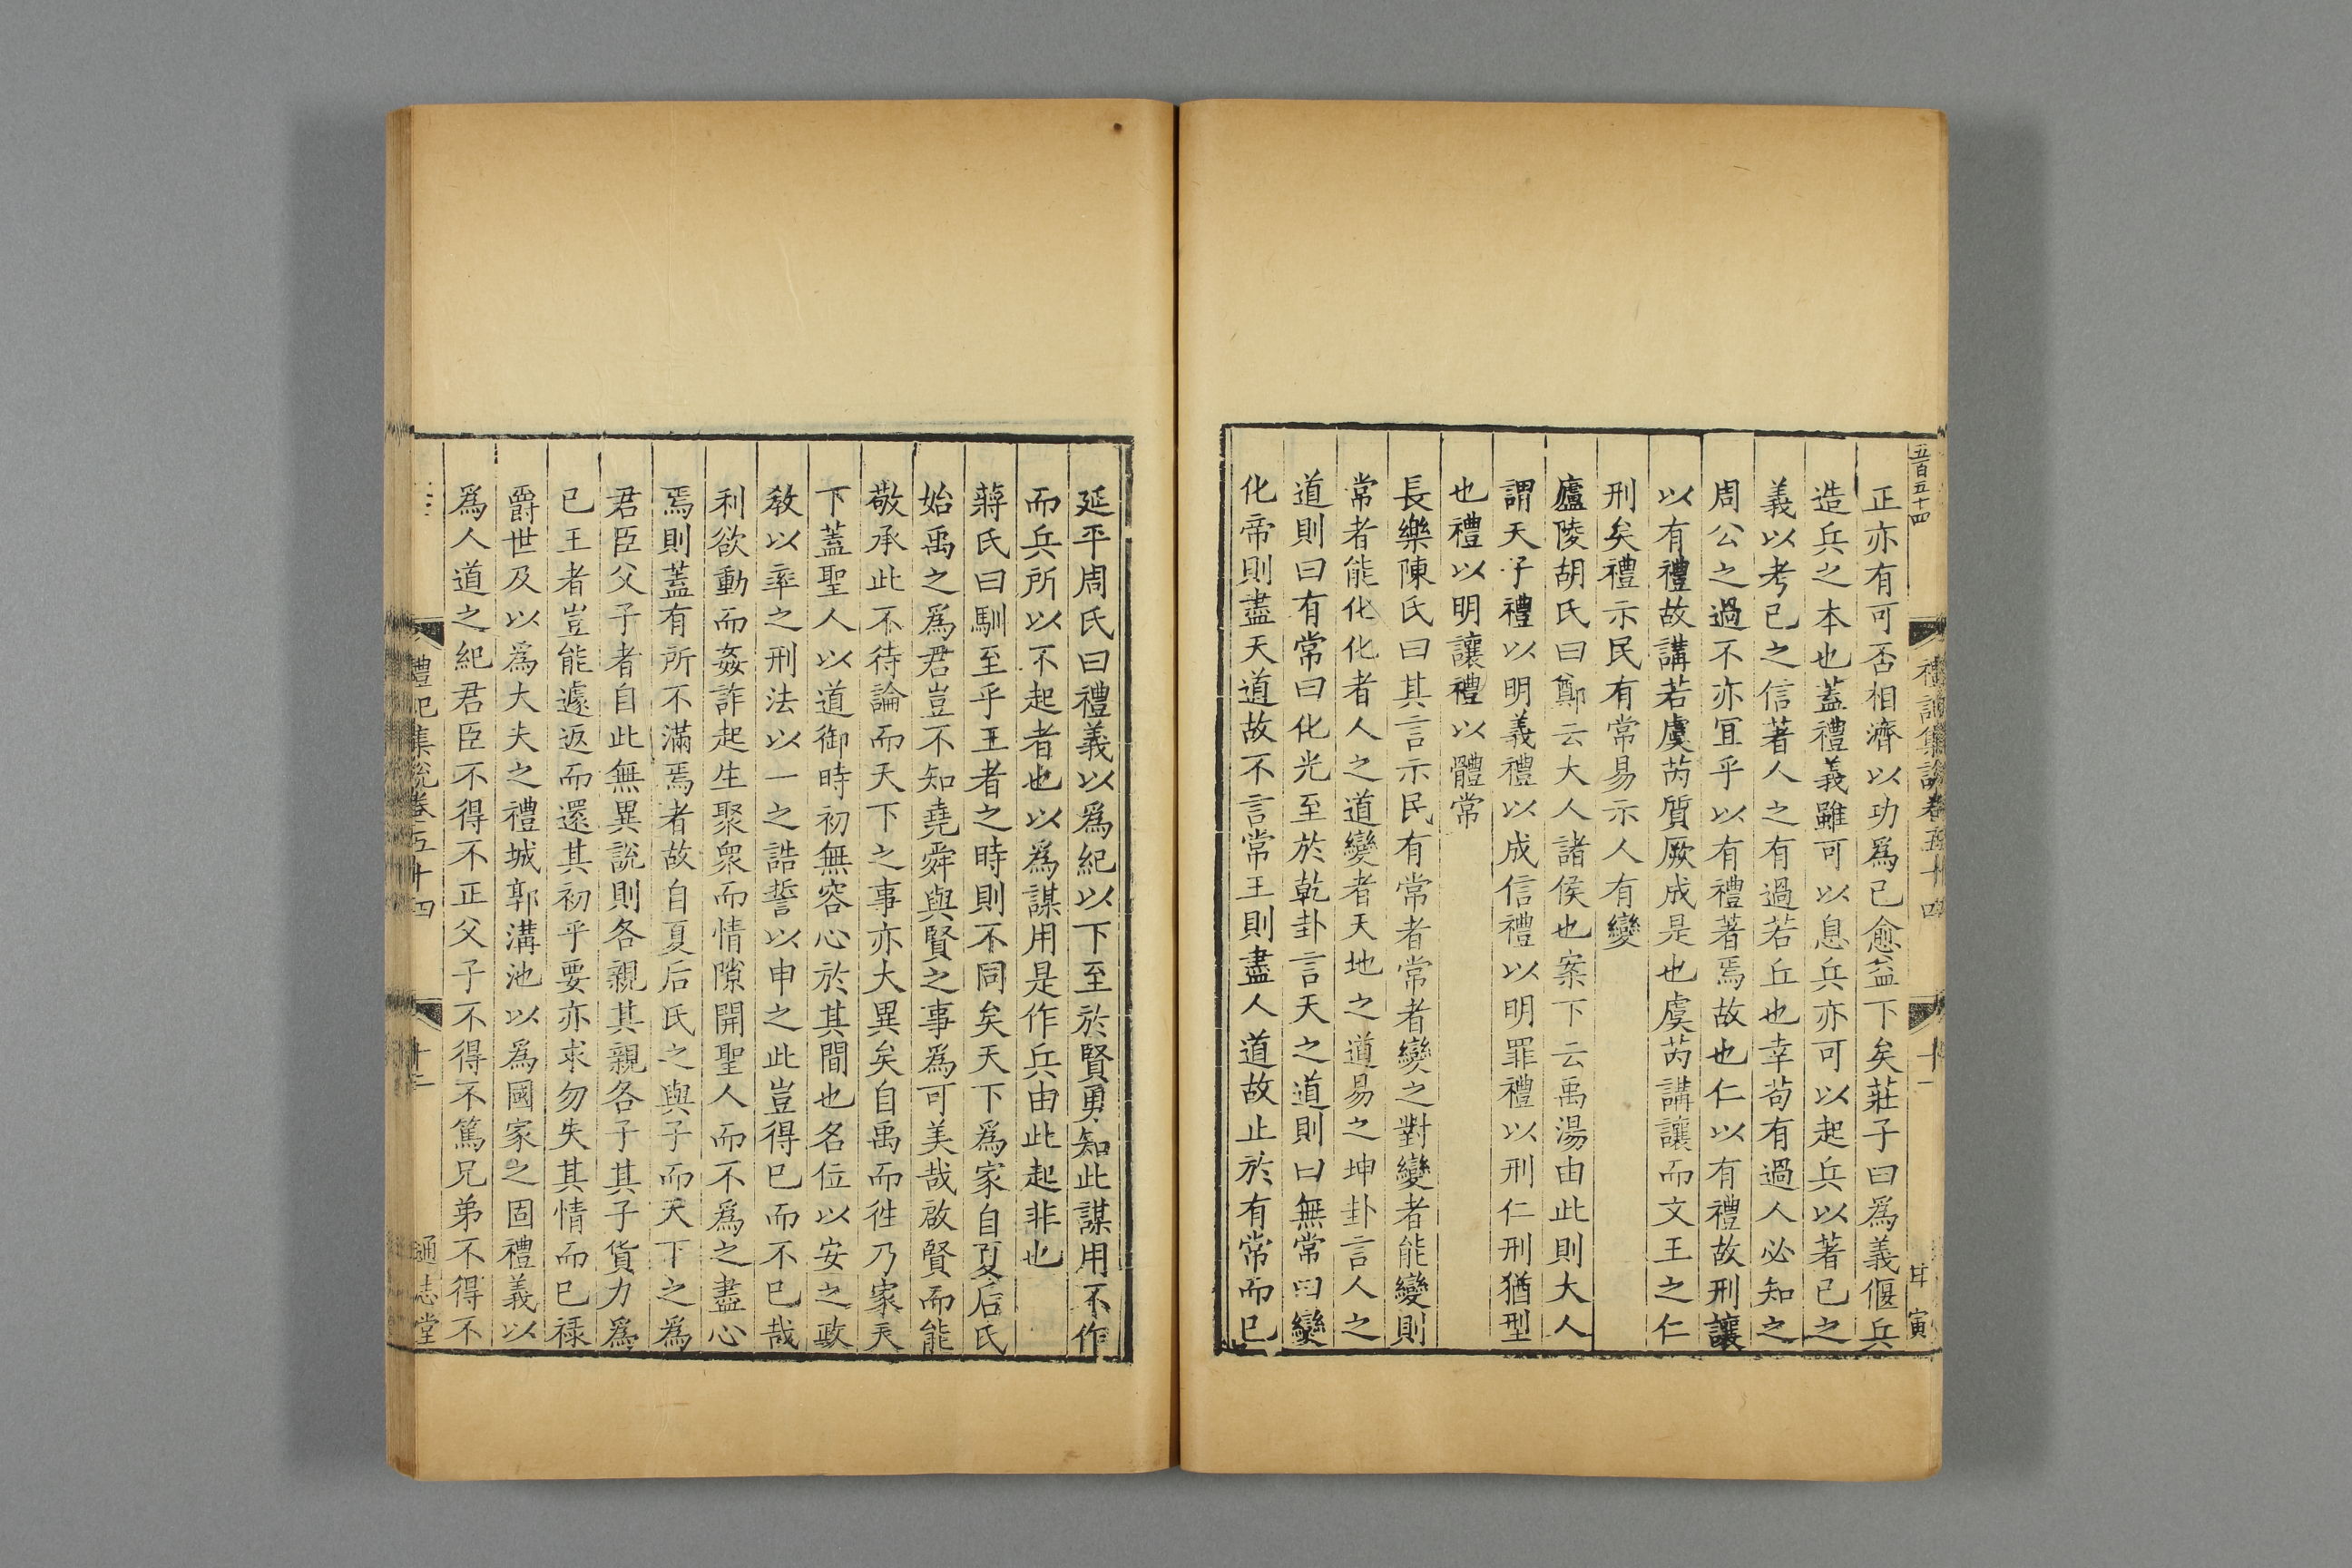 五百五十四
禮記集說卷五十四
十一
甘寅
正亦有可否相濟以功爲已愈益下矣莊子曰爲義偃兵
造兵之本也蓋禮義雖可以息兵亦可以起兵以著已之
義以考已之信著人之有過若丘也幸苟有過人必知之
周公之過不亦冝乎以有禮著焉故也仁以有禮故刑讓
以有禮故講若虞芮質厥成是也虞芮講讓而文王之仁
刑矣禮示民有常易示人有變
廬陵胡氏曰鄭云大人諸侯也案下云禹湯由此則大人
謂天子禮以明義禮以成信禮以明罪禮以刑仁刑猶型
也禮以明讓禮以體常
長樂陳氏曰其言示民有常者常者變之對變者能變則
常者能化化者人之道變者天地之道易之坤卦言人之
道則曰有常曰化光至於乾卦言天之道則曰無常曰變
化帝則盡天道故不言常王則盡人道故止於有常而已
延平周氏曰禮義以爲紀以下至於賢勇知此謀用不作
而兵所以不起者也以爲謀用是作兵由此起非也
蔣氏曰馴至乎王者之時則不同矣天下爲家自夏后氏
始禹之爲君豈不知堯舜與賢之事爲可美哉啟賢而能
敬承此不待論而天下之事亦大異矣自禹而徃乃家天
下蓋聖人以道御時初無容心於其間也名位以安之政
教以率之刑法以一之誥誓以申之此豈得已而不已哉
利欲動而姦詐起生聚衆而情隙開聖人而不爲之盡心
焉則蓋有所不滿焉者故自夏后氏之與子而天下之爲
君臣父子者自此無異說則各親其親各子其子貨力爲
已王者豈能遽返而還其初乎要亦求勿失其情而已祿
爵世及以爲大夫之禮城郭溝池以爲國家之固禮義以
爲人道之紀君臣不得不正父子不得不篤兄弟不得不
禮記集說卷五十四
通志堂